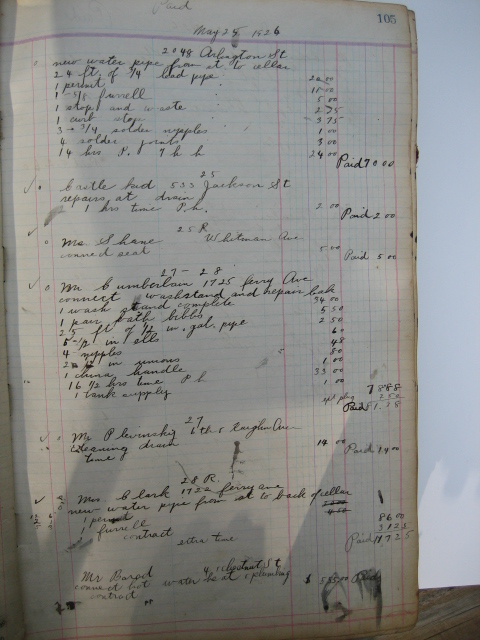 Paid
105
May 24, 1926
2048 Arlington St
new water pipe from st to cellar
24 ft of 3/4 lead pipe 20 00
1 permit
1 - 5/8 furrell 5 00
1 stop and waste 2 75
1 curb stop 3 75
3 - 3/4 solder nipples 1 00
4 solder joints 3 00
14 hrs P. 24 00
Paid 70 00
25
533 Jackson St
repairs at drain
1 hrs time P.h. 2 00
Paid 2 00
25 R
Mrs. Shane Whitman Ave
connect seat 5 00
Paid 5 00
27 - 28
Mr Cumberlain 1725 Ferry Ave
connect washstand and repair leak
1 wash stand complete 34 00
1 pair bath bibbs 5 50
25 ft of 1/2 in. gal. pipe 2 50
5 - 1/2 in ells 60
4 nipples 48
2 in unions 80
1 china handle 1 00
16 1/2 hrs time P h 33 00
1 tank supply 1 00
78 88
2 50
Paid 81.38
27
Mr 6th &
cleaning drain 14 00
time
Paid 14.00
28 R.
Mrs Clark 1722 Ferry ave
new water pipe from st to back of cellar
1 permit
furrell 86 00
contract 31 25
extra time
Paid 117 25
Mr Chestnut St
connect hot water heat & plumbing
contract
$ Paid